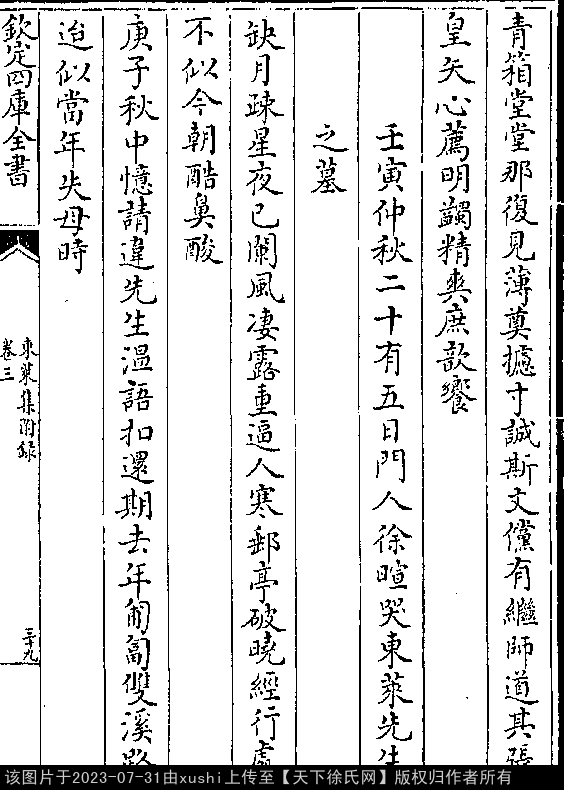 青箱堂堂那復見薄奠攄寸誠斯文儻有繼師道其張
皇矢心薦明蠲精爽庶歆饗
壬寅仲秋二十有五日門人徐暄哭東萊先生
之墓
缺月疎星夜已闌風凄露重逼人寒郵亭破曉經行處
不似今朝酷鼻酸
庚子秋中憶請違先生温語扣還期去年匍匐雙溪路
迨似當年失母時
欽定四庫全書
東萊集附録
卷三
三十九
该图片于2023-07-31由xushi上传至【天下徐氏网】版权归作者所有